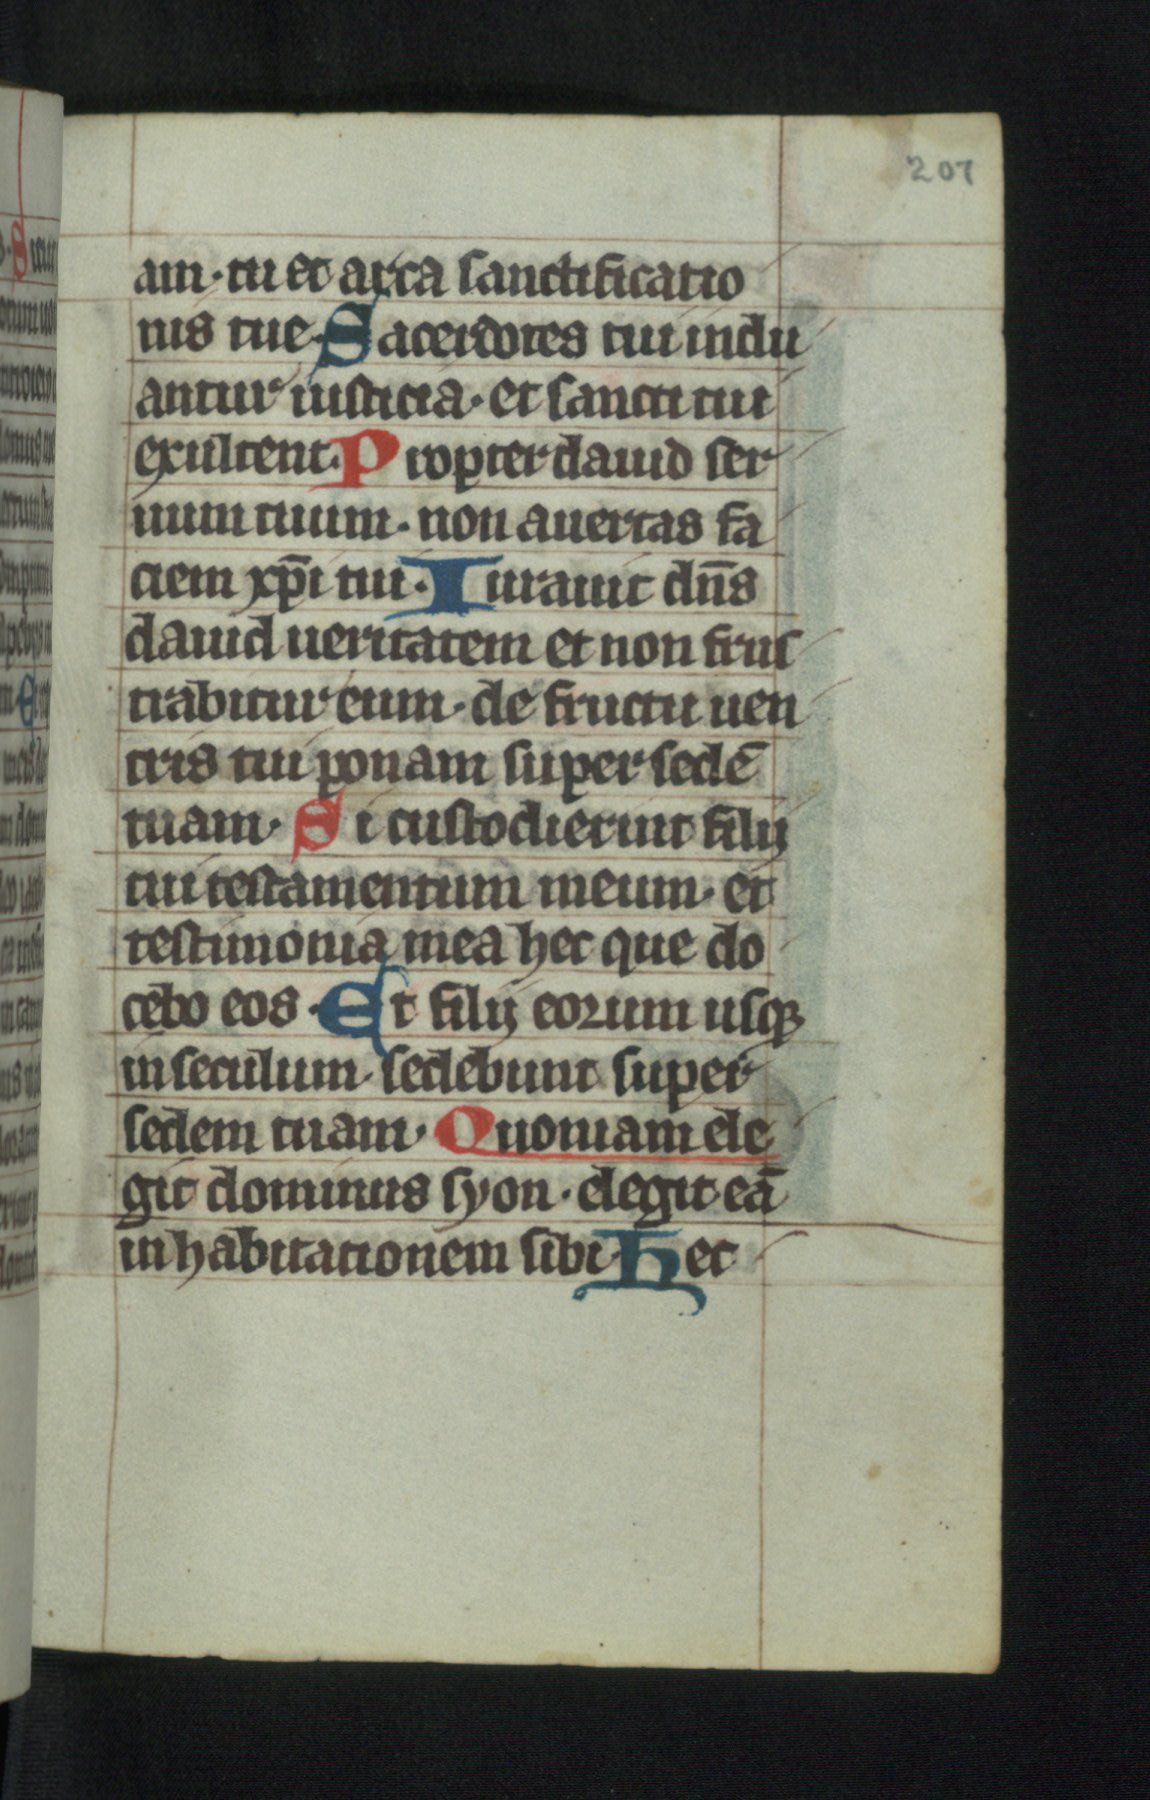 207
am · tu et arca sanctificatio
nis tue · Sacerdotes tui indu
antur iusticia · et sancti tui
exultent · Propter dauid ser
uum tuum · non auertas fa
ciem xp̄i tui · Iurauit dn̄s
dauid ueritatem et non frus
trabitur eum · de fructu uen
tris tui ponam super sedē
tuam · Si custodierint filij
tui testamentum meum · et
testimonia mea hec que do
cebo eos · Et filij eorum usqꝫ
in seculum · sedebunt super
sedem tuam · Quoniam ele
git dominus syon · elegit eā
in habitationem sibi · Hec